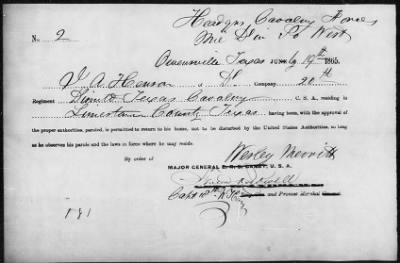 Hdqrs Cavalry Forces
Mil Div West
No. 2
Owensville Texas July 19th 1865.
J A Henson, Company, 20th
Regiment Texas Cavalry C. S. A., residing in
Limestone County Texas having been, with the approval of
the proper authorities, paroled, is permitted to return to his home, not to be disturbed by the United States Authorities, so long
as he observes his parole and the laws in force where he may reside.
By order of
Wesley Merritt
MAJOR GENERAL E. R. S. CANBY, U. S. A.
Capt 18th N.Y. and Provost Marshal General.